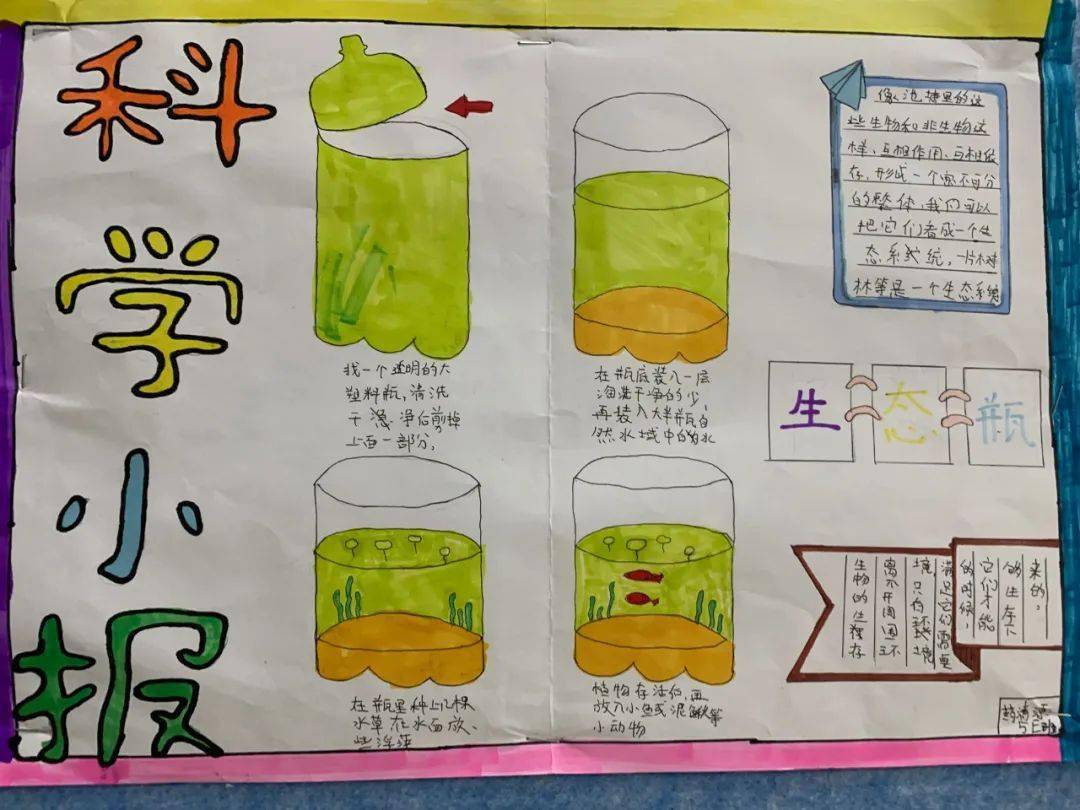 科
学
小
报
找一个透明的大
塑料瓶，清洗
干净后剪掉
上面一部分。
在瓶底装入一层
淘洗干净的沙，
再装入大半瓶自
然水域中的水
在瓶里种上几棵
水草在水面放、
些浮萍
植物存活后，再
放入小鱼或泥鳅等
小动物
像池塘里的这
些生物和非生物这
样，互相作用、互相依
存，形成一个密不可分
的整体，我们可以
把它们看成一个生
态系统，一片树
林等是一个生态系统
生 态 瓶
生物的生存
离不开周围环
境，只有环境
满足它们需要
的时候，
它们才能
的生存下
来的。
5
班